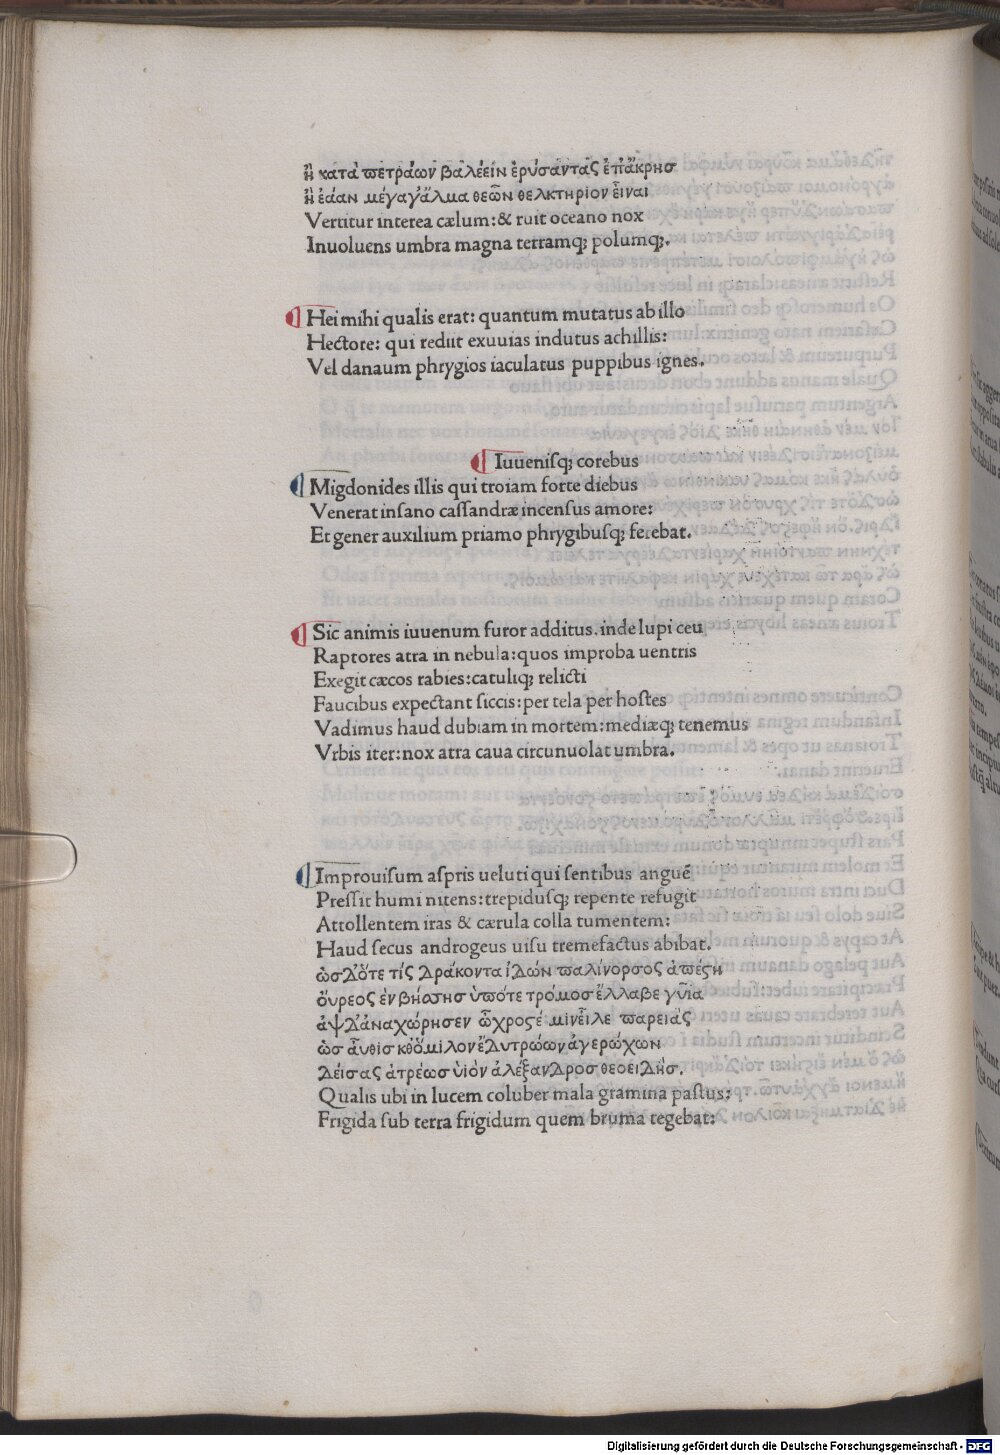 ἢ κατὰ πετράων βαλέειν ἐρύσαντας ἐπἄκρησ
ἢ ἐάαν μέγαγἄλμα θεῶν θελκτηριον εἶναι
Vertitur interea cælum:& ruit oceano nox
Inuoluens umbra magna terramq; polumq;.
Hei mihi qualis erat: quantum mutatus ab illo
Hectore: qui rediit exuuias indutus achillis:
Vel danaum phrygios iaculatus puppibus ignes.
Iuuenisq; corebus
Migdonides illis qui troiam forte diebus
Venerat insano cassandræ incensus amore:
Et gener auxilium priamo phrygibusq; ferebat.
Sic animis iuuenum furor additus. inde lupi ceu
Raptores atra in nebula:quos improba uentris
Exegit cæcos rabies:catuliq; relicti
Faucibus expectant siccis:per tela per hostes
Vadimus haud dubiam in mortem:mediæq; tenemus
Vrbis iter:nox atra caua circunuolat umbra.
Improuisum aspris ueluti qui sentibus anguẽ
Pressit humi nitens:trepidusq; repente refugit
Attollentem iras & cærula colla tumentem:
Haud secus androgeus uisu tremefactus abibat.
ὡσ δ'ὅτε τίς δράκοντα ἰδὼν παλίνορσος ἀπέϛη
ὄυρεος ἐν βήσσησ ὑπότε τρόμοσ ἔλλαβε γῦια
ἀψδ'ἀναχώρησεν ὦχροσέ μιν εἷλε παρειάς
ὡσ αὖθισ κθ'ὅμιλον ἔδυτρώων ἀγερώχων
δέισας ἀτρέωσ υἱὸν ἀλέξανδροσ θεοειδήσ.
Qualis ubi in lucem coluber mala gramina pastus:
Frigida sub terra frigidum quem bruma tegebat:
Digitalisierung gefördert durch die Deutsche Forschungsgemeinschaft - DFG